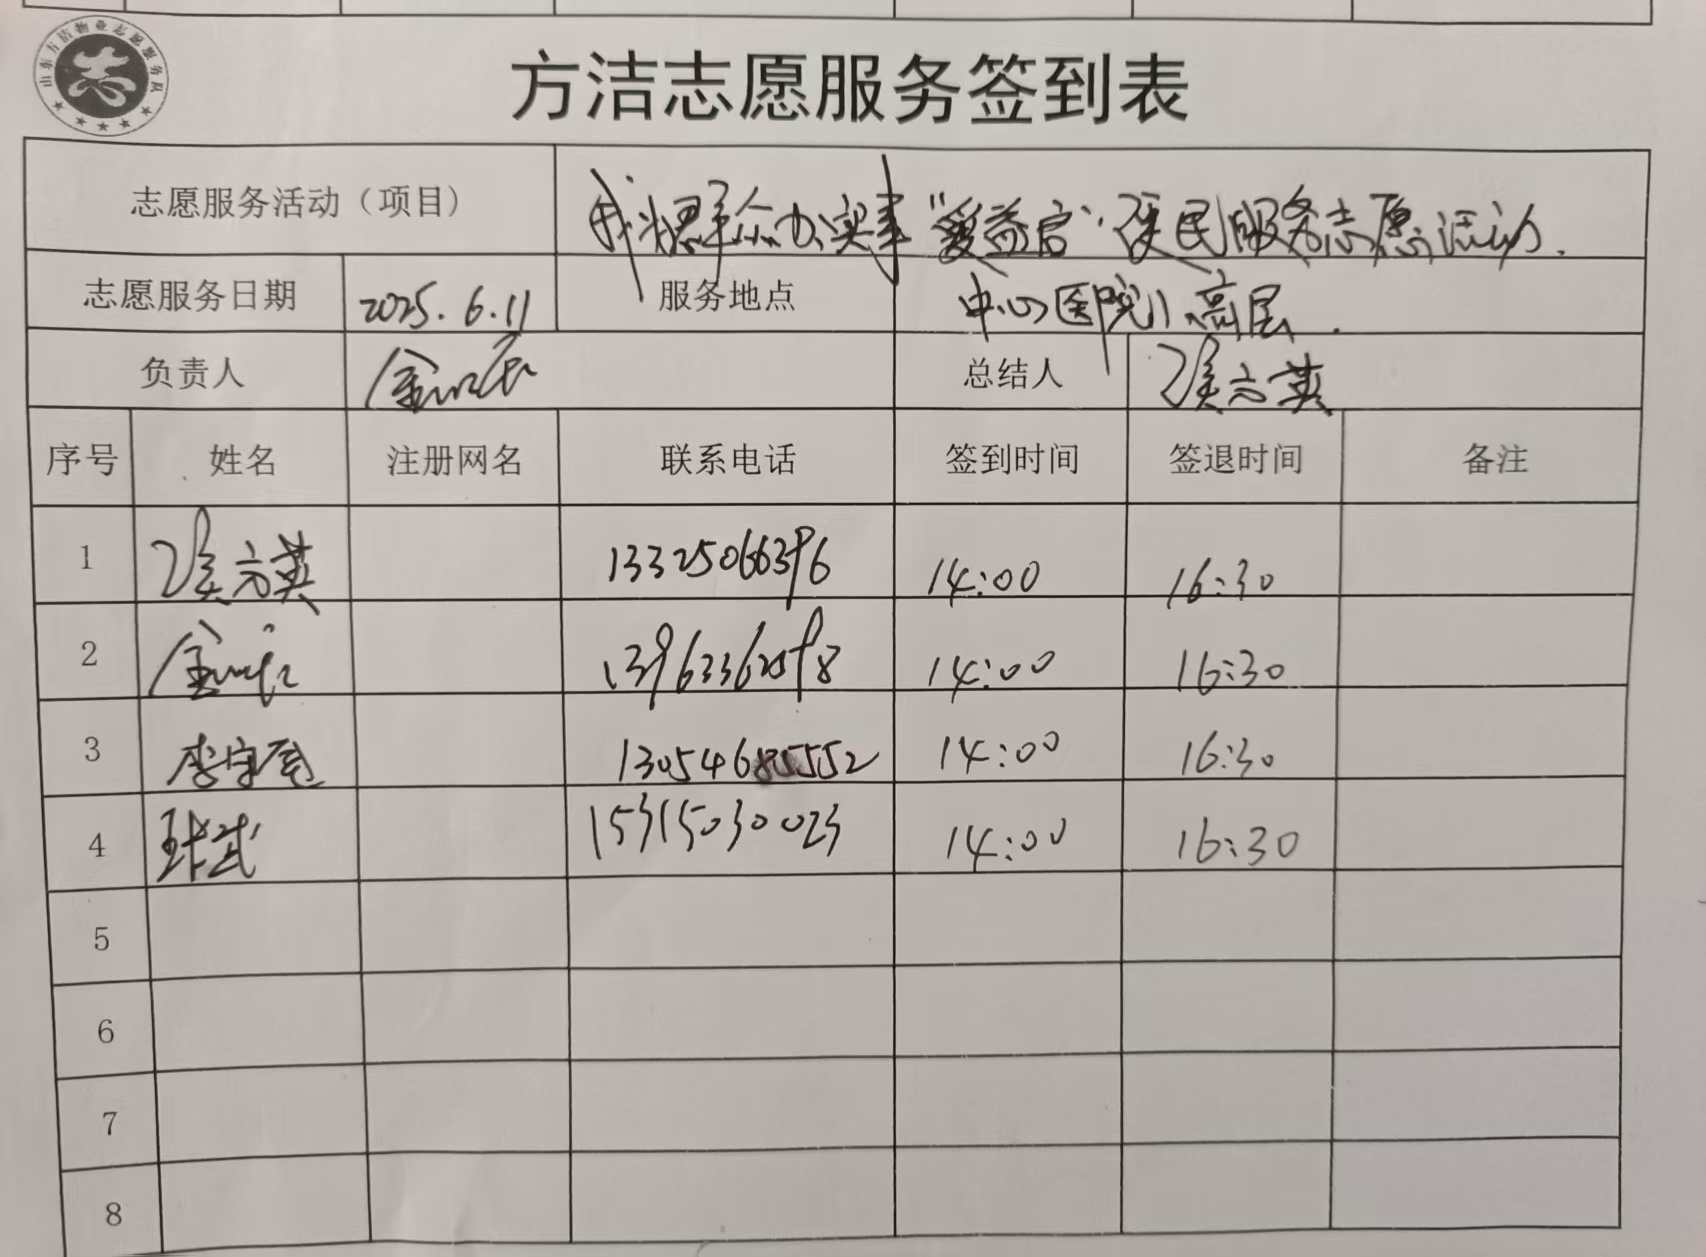 山东方洁物业志愿服务队
方洁志愿服务签到表
志愿服务活动（项目） 我为群众办实事“爱益启”便民服务志愿活动.
志愿服务日期 2025.6.11 服务地点 中心医院小高层.
负责人 总结人 侯六英
序号 姓名 注册网名 联系电话 签到时间 签退时间 备注
1 侯六英 14:00 16:30
2 14:00 16:30
3 13054685552 14:00 16:30
4 15315030023 14:00 16:30
5
6
7
8